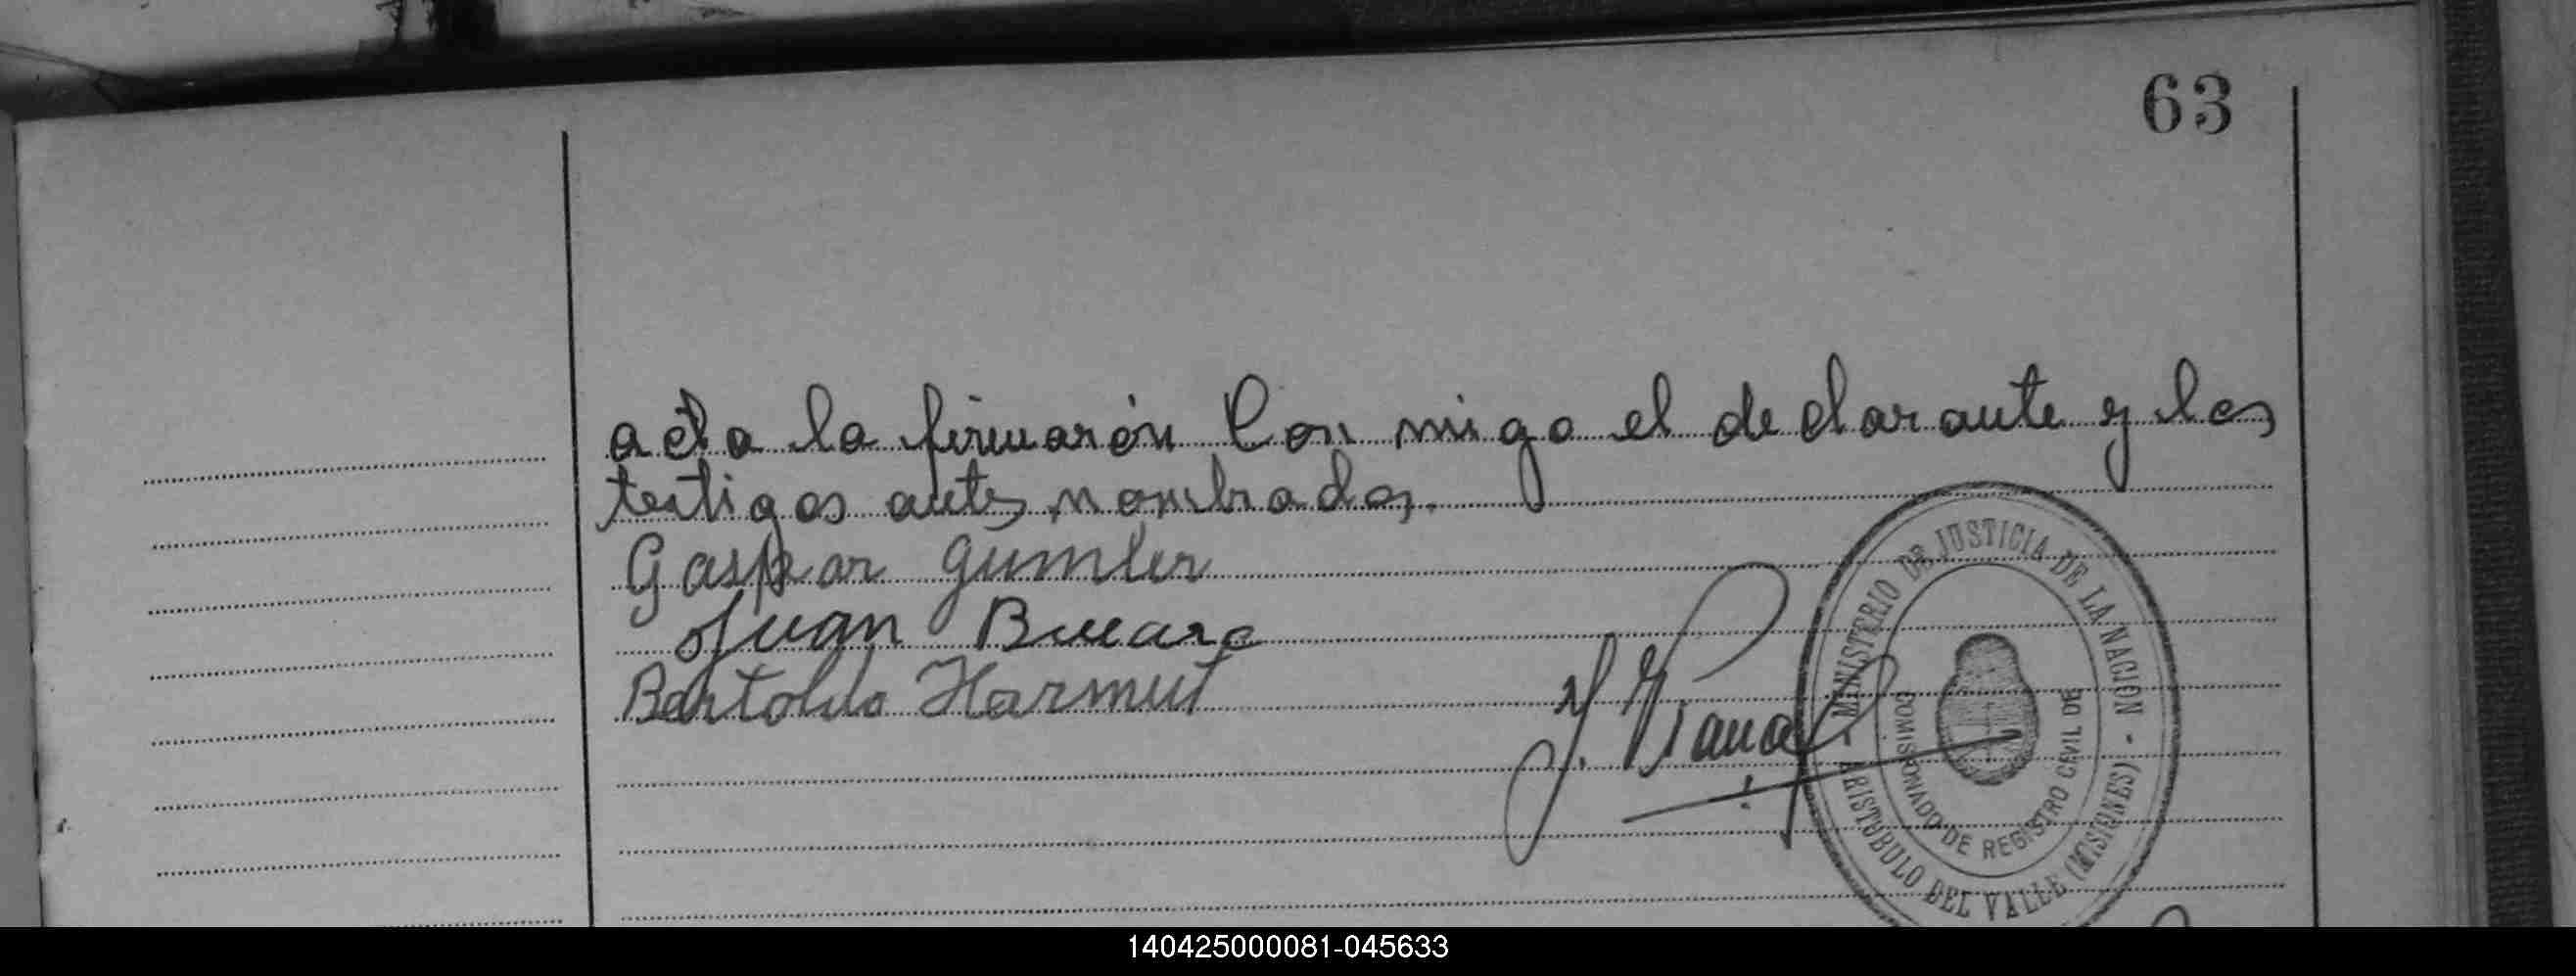 63
acta la firmarón Con migo el declarante y los
testigos antes nombrados.
Gaspar Gumler
Juan
Bartoldo Harmut
J.
MINISTERIO DE JUSTICIA DE LA NACION
COMISIONADO DE REGISTRO CIVIL DE
ARISTOBULO DEL VALLE (MISIONES)
140425000081-045633